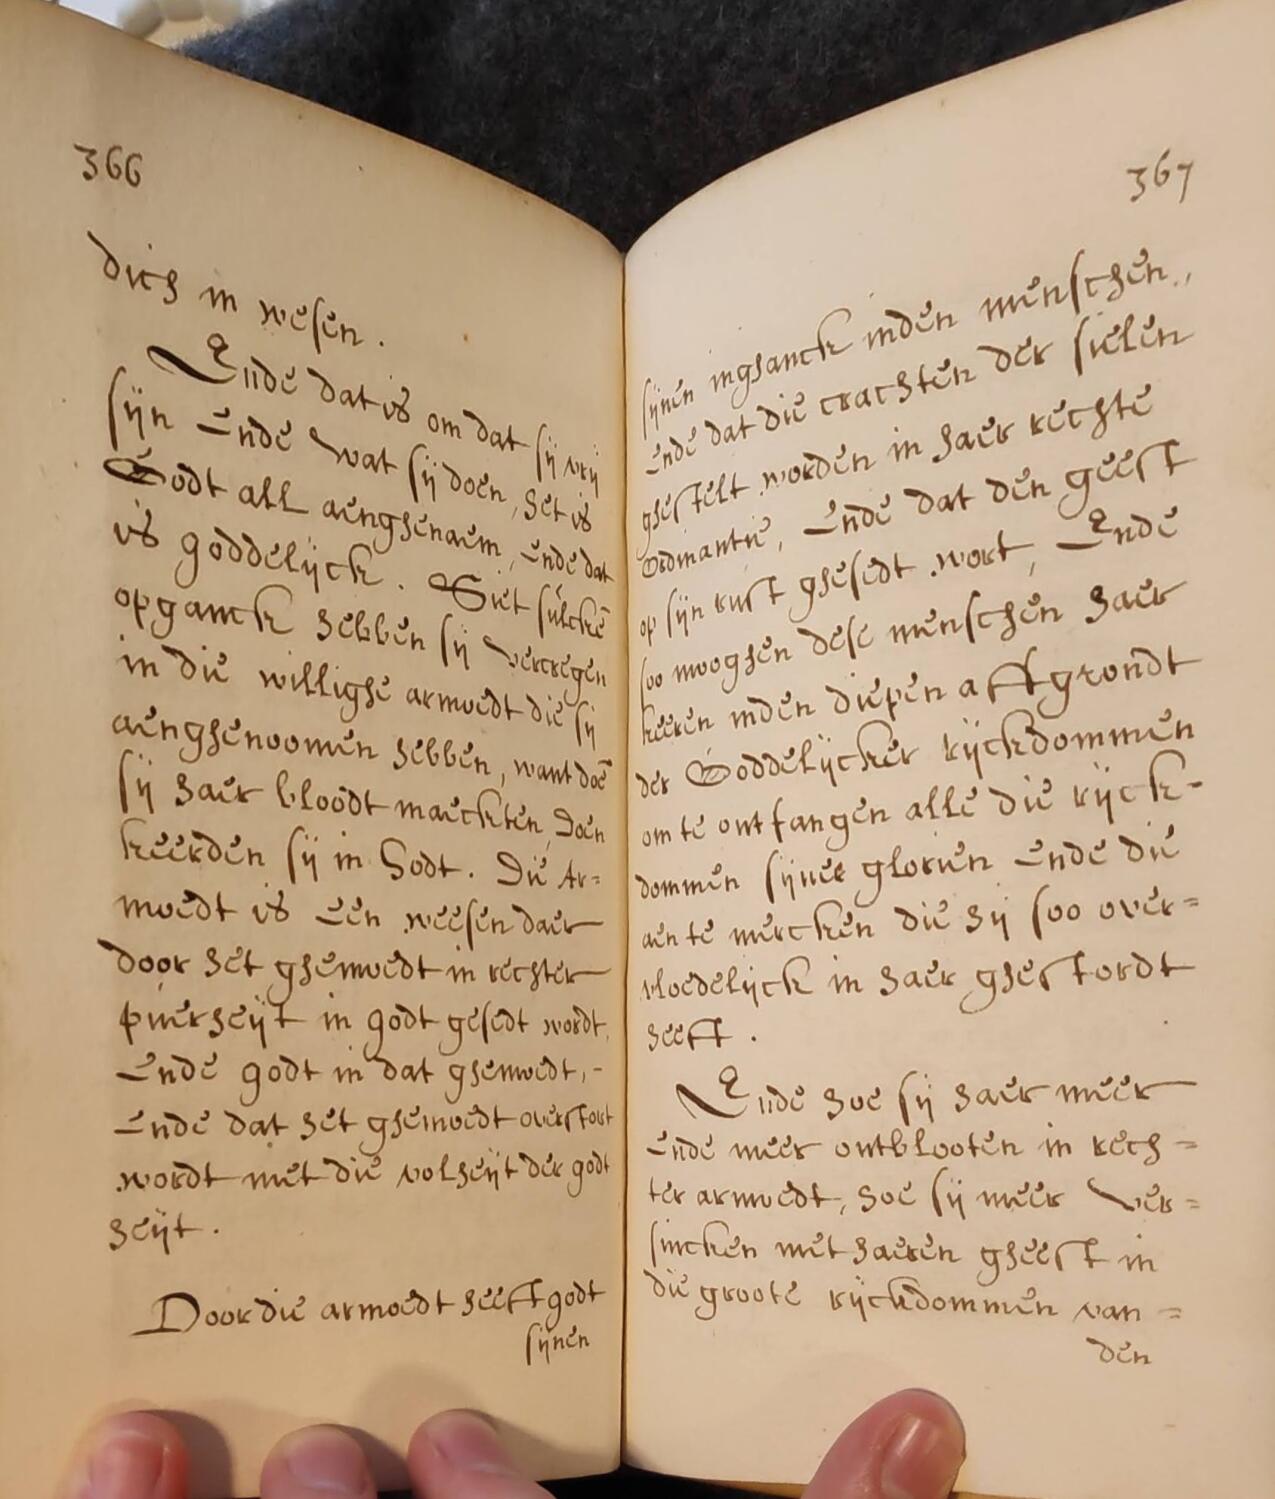 366
dich in wesen.
Ende dat is om dat sij vrij
sijn ende wat sij doen, het is
Godt all aenghenaem, ende dat
is goddelijck. Siet sulckē
opganck hebben sij vercregen
in die willighe armoedt die sij
aenghenoomen hebben, want doē
sij haer bloodt maeckten, Doen
keerden sij in Godt. Die Ar=
moedt is een weesen daer
door het ghemoedt in rechter
puerheijt in godt gesedt wordt,
ende godt in dat ghemoedt,-
ende dat het ghemoedt overstort
wordt met die volheijt der godt
heijt.
Door die armoedt heeft godt
sijnen
367
sijnen inghanck inden menschen,
ende dat die crachten der sielen
ghestelt worden in haer rechte
Ordinantie, ende dat den geest
op sijn rust ghesedt wort, Ende
soo mooghen dese menschen haer
keeren inden diepen affgrondt
der Goddelijcker rijckdommen
om te ontfangen alle die rijck-
dommen sijnee glorien ende die
aen te mercken die hij soo over=
vloedelijck in haer ghestordt
heeft.
Ende hoe sij haer meer
ende meer ontblooten in rech=
ter armoedt, hoe sij meer ver=
sincken met haeren gheest in
die groote rijckdommen van =
den